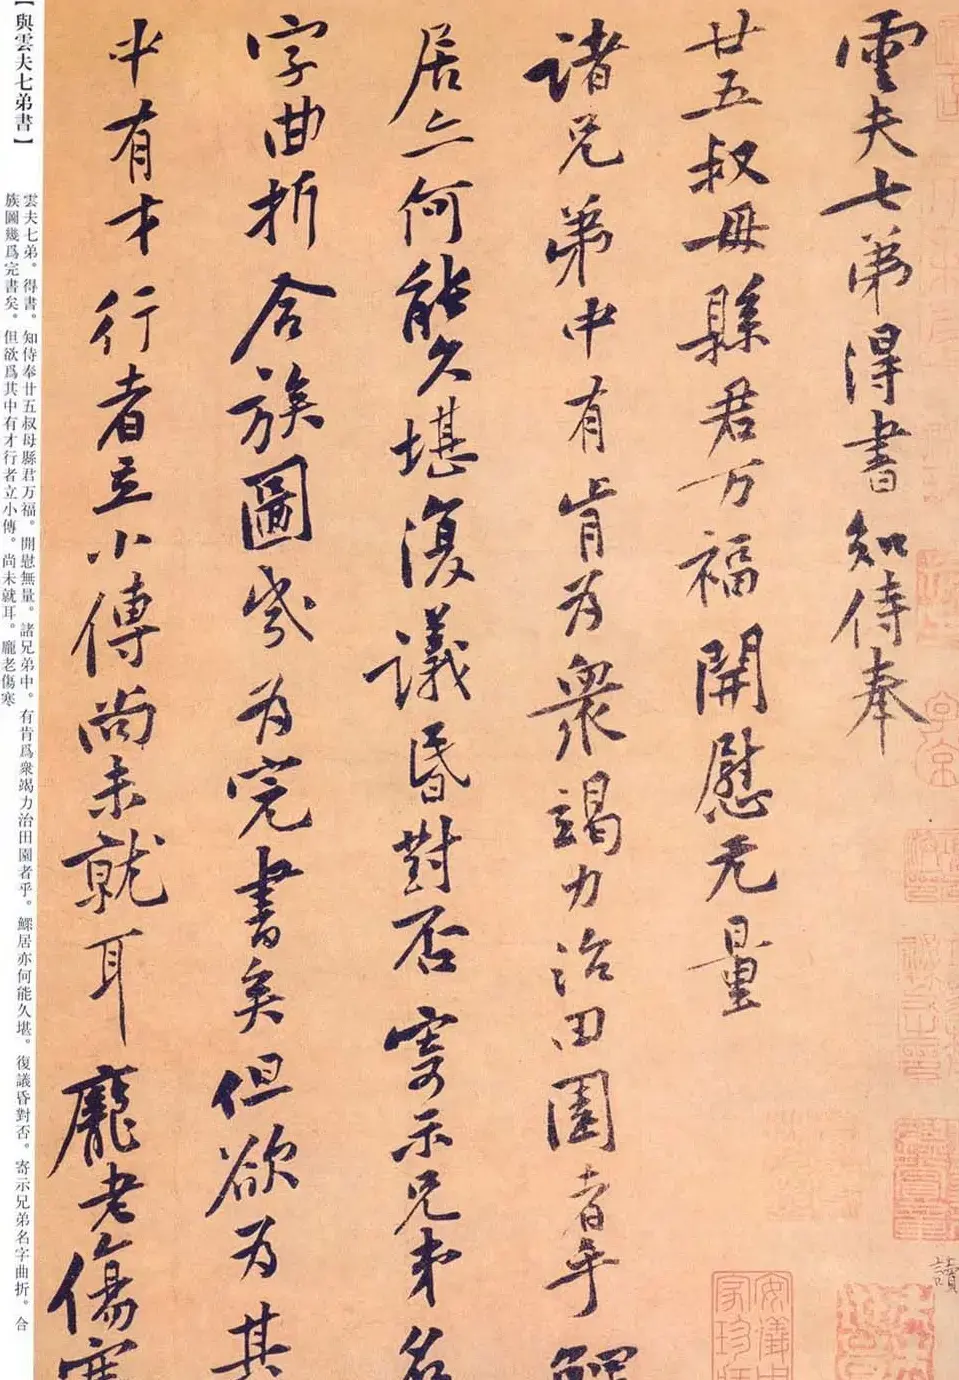 雲夫七弟得書知侍奉
廿五叔母縣君万福開慰无量
諸兄弟中有肯为衆竭力治田園者乎鰥
居亦何能久堪復議昏對否寄示兄弟名
字曲折合族圖幾为完書矣但欲为其
中有才行者立小傳尚未就耳龐老傷寒
讀
【與雲夫七弟書】
雲夫七弟。得書。知侍奉廿五叔母縣君万福。開慰無量。諸兄弟中。有肯爲衆竭力治田園者乎。鰥居亦何能久堪。復議昏對否。寄示兄弟名字曲折。合
族圖幾爲完書矣。但欲爲其中有才行者立小傳。尚未就耳。龐老傷寒